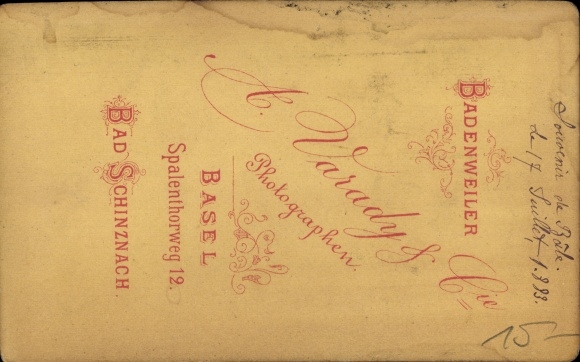 A. Varady & Cie
Photographen.
BADENWEILER
BASEL
Spalenthorweg 12.
BAD SCHINZNACH.
Souvenir de Bâle.
le 17 Juillet, 1893.
15-